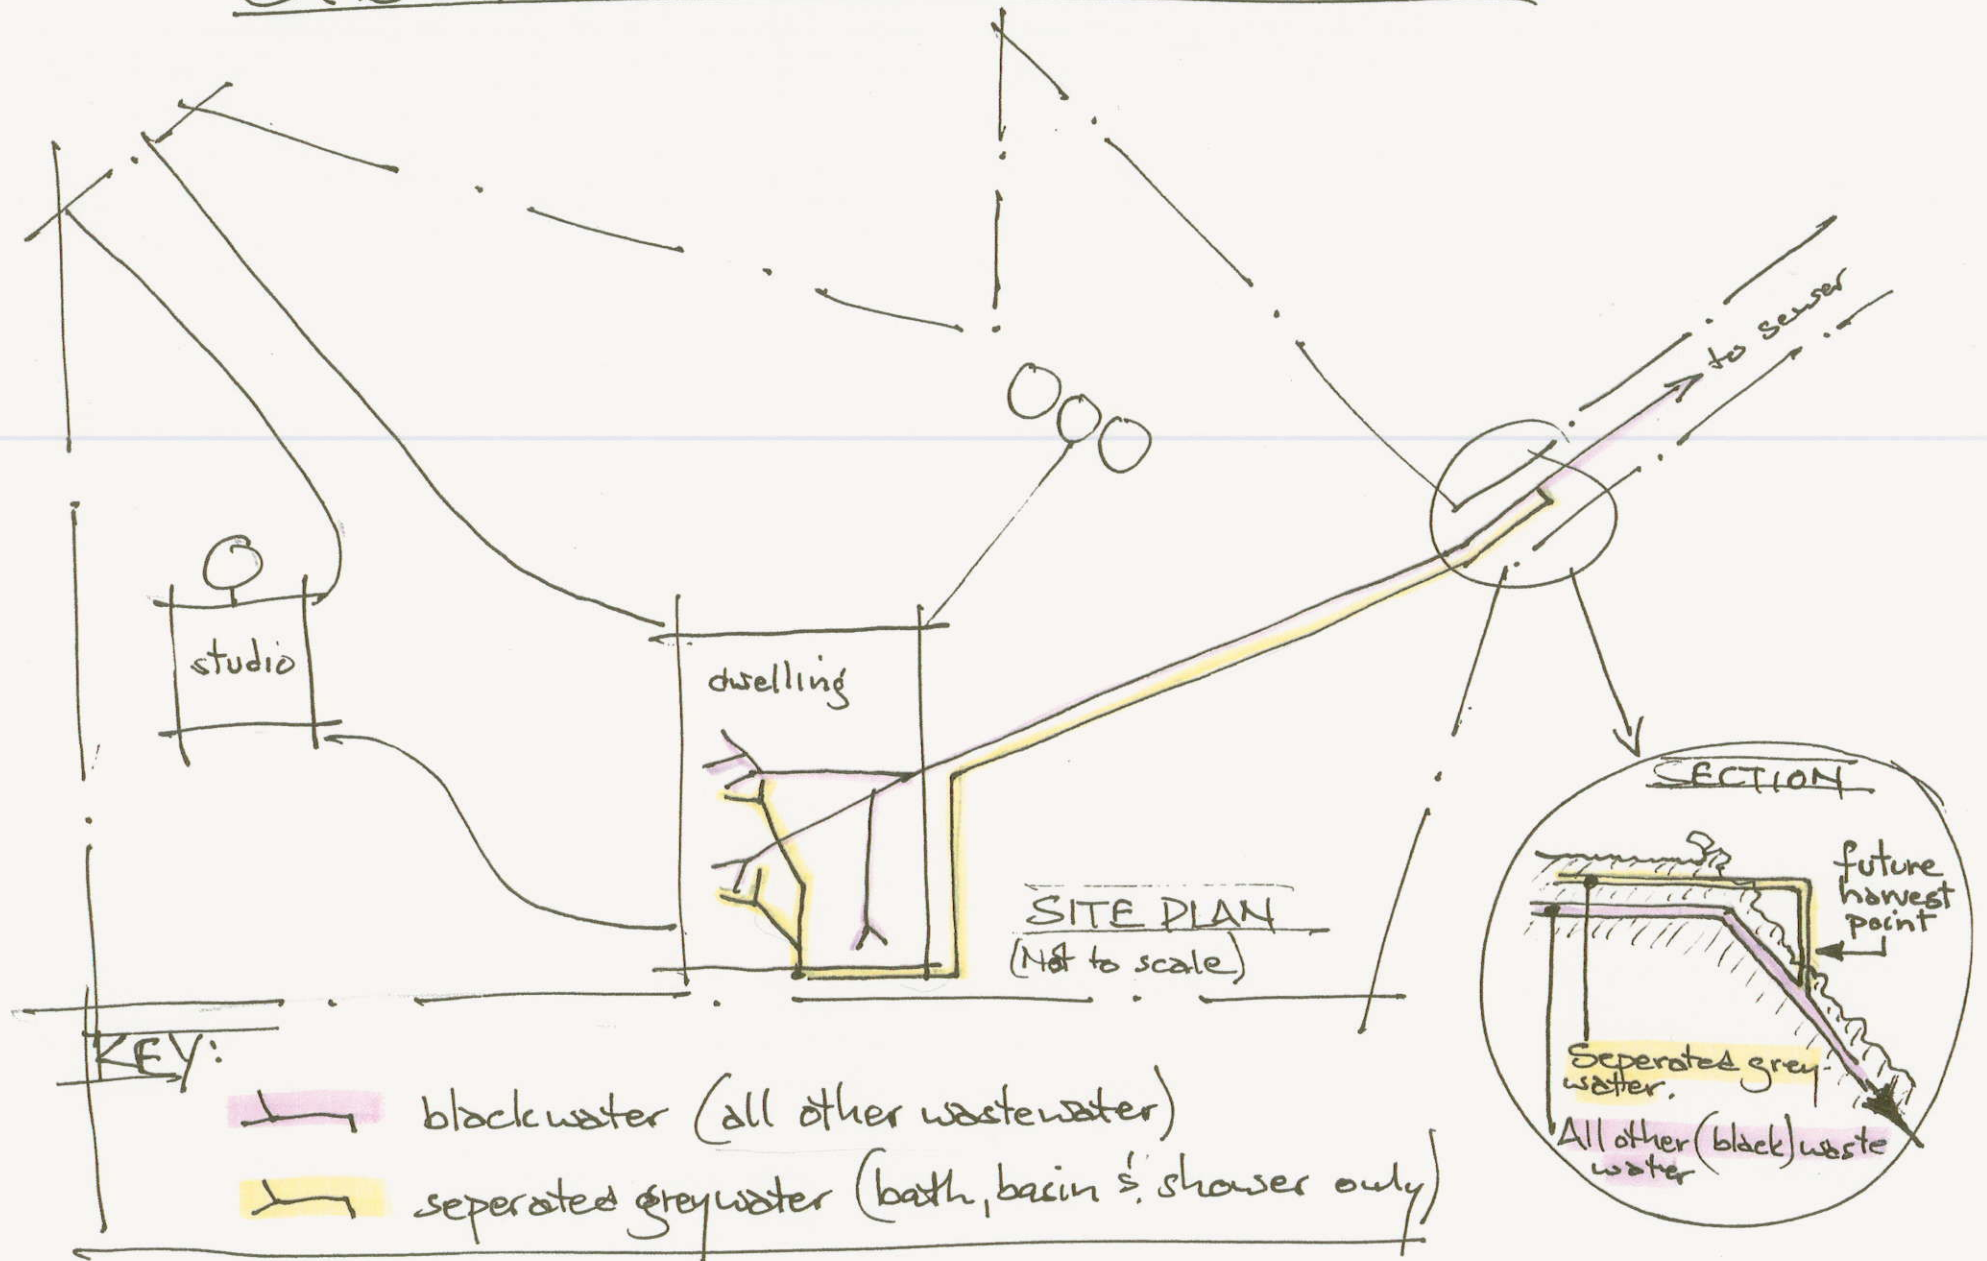 to sewer
studio
dwelling
SITE PLAN
(Not to scale)
SECTION
future
harvest
point
Seperated grey-
water.
All other (black) waste
water
KEY:
blackwater (all other wastewater)
seperated greywater (bath, basin & shower only)